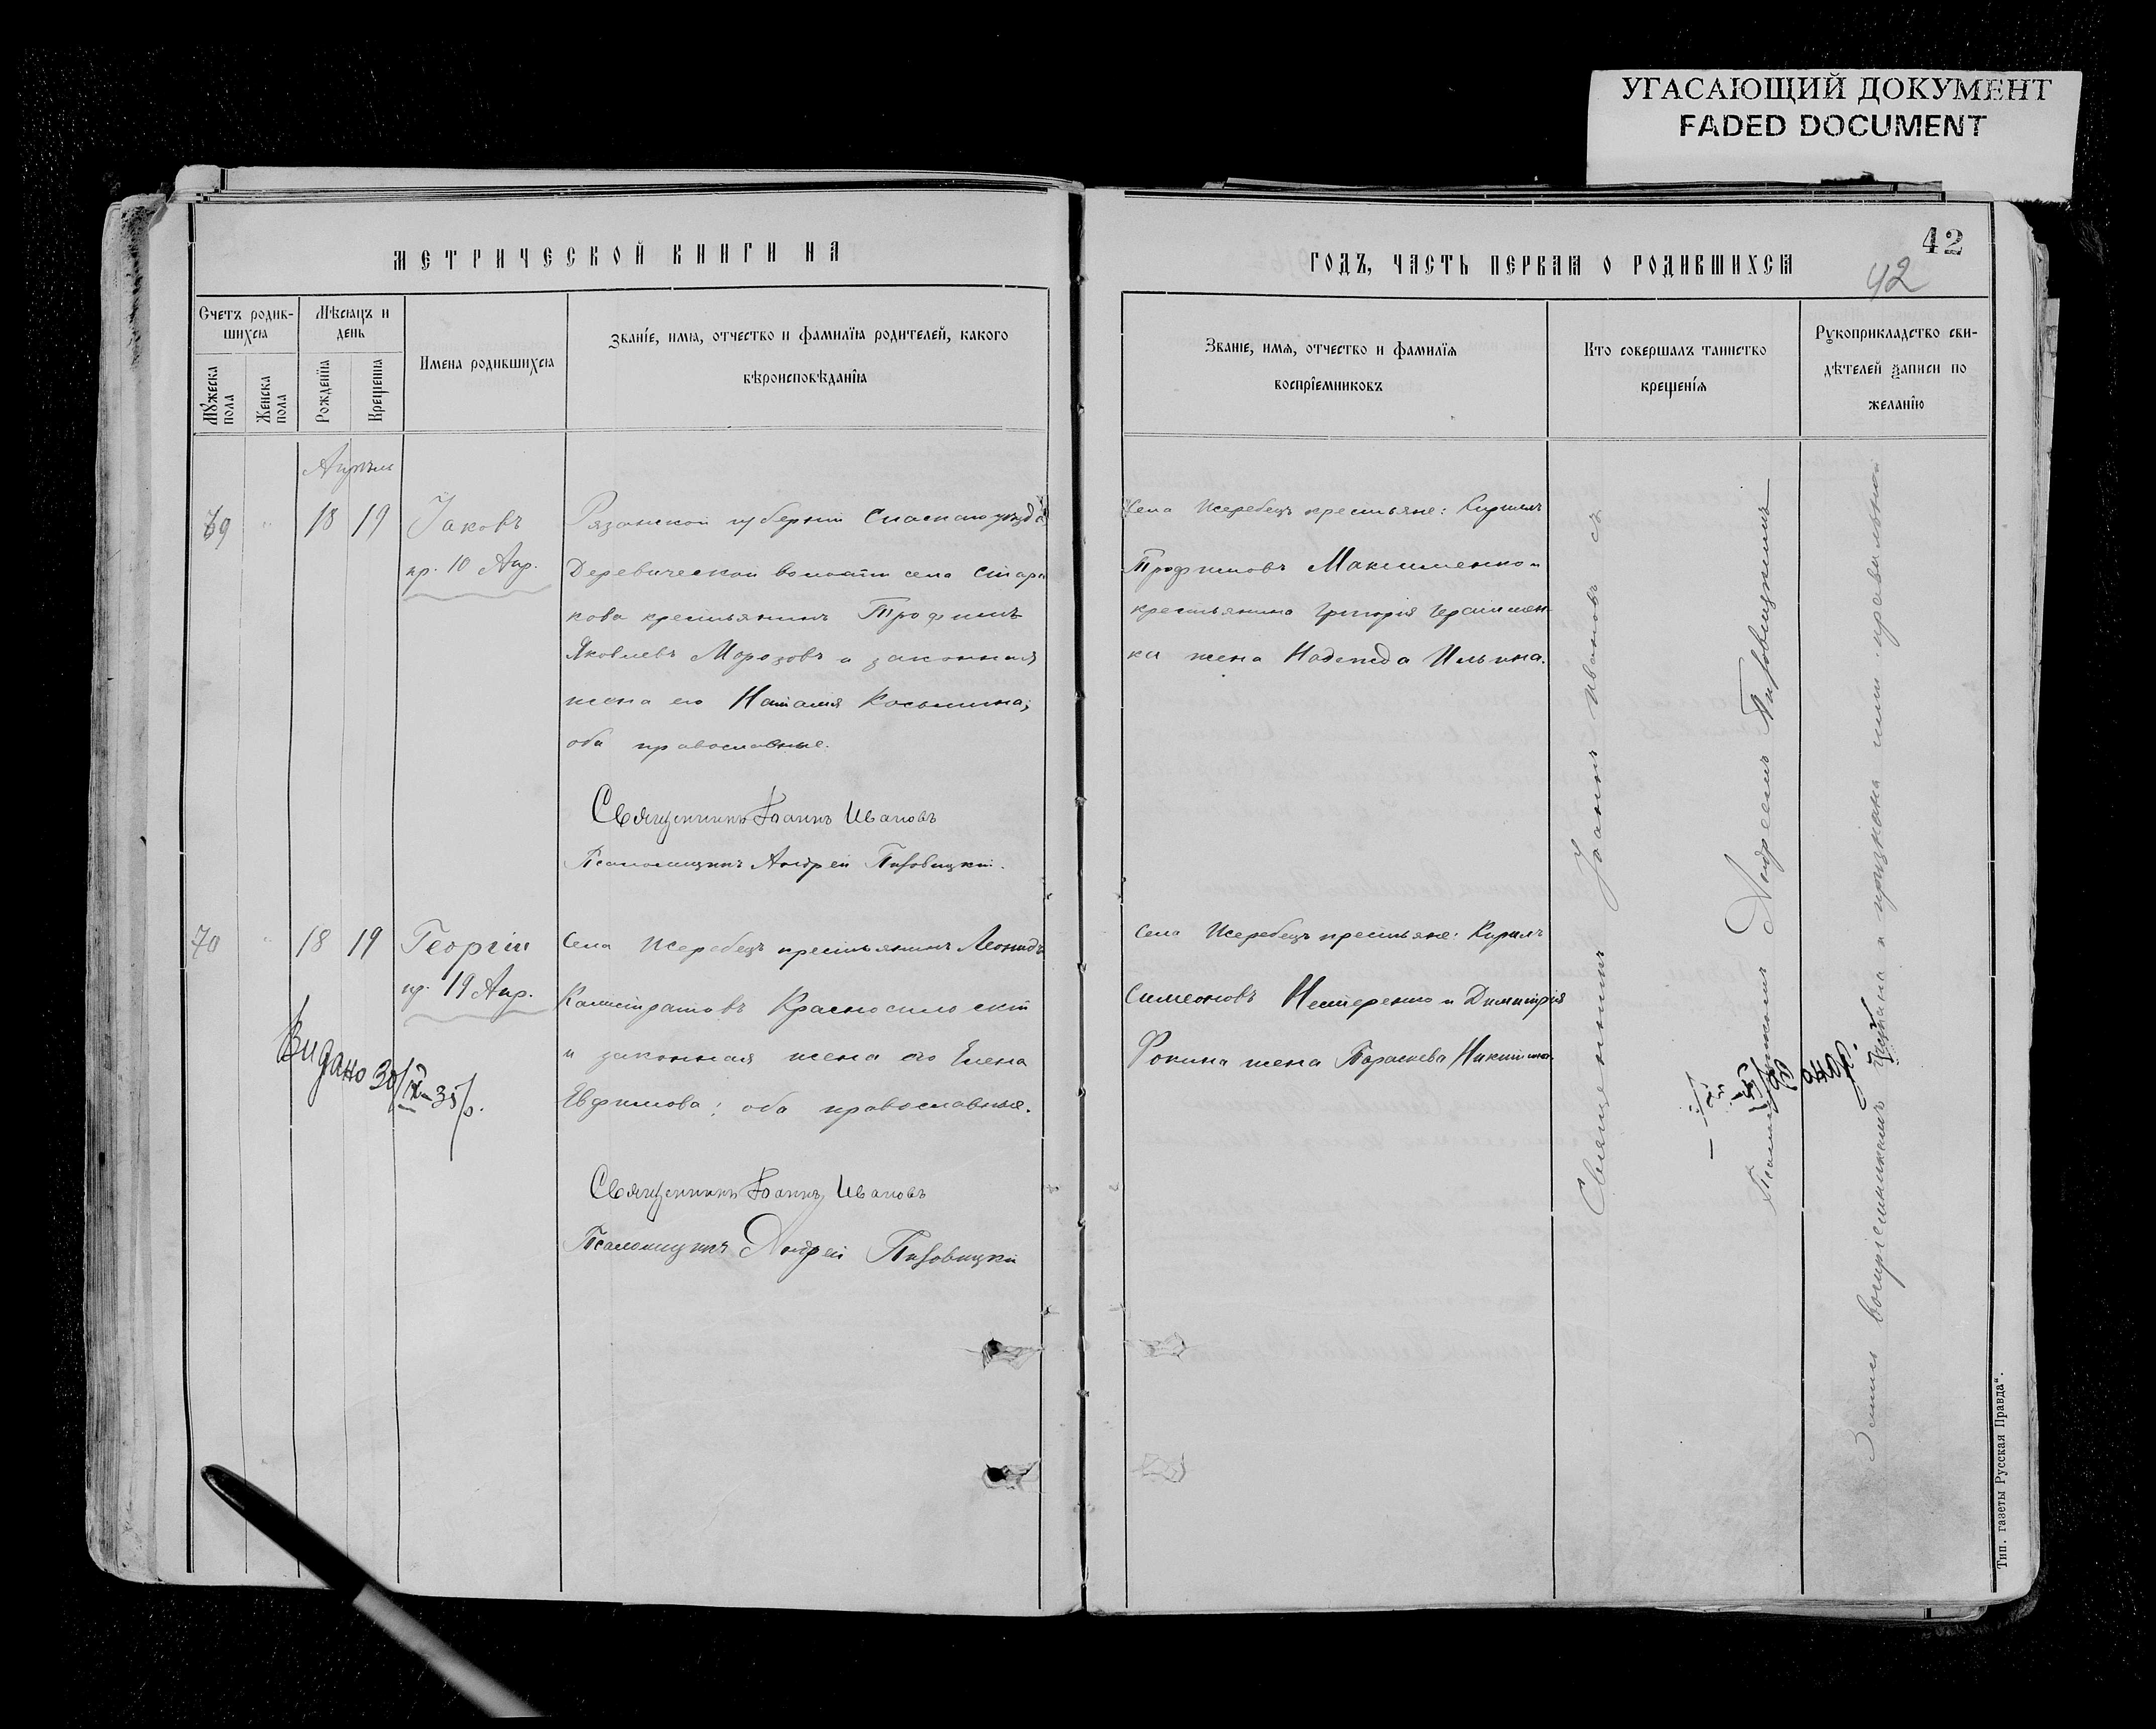 УГАСАЮЩИЙ ДОКУМЕНТ
FADED DOCUMENT
МЕТРИЧЕСКОЙ КНИГИ НА
Счетъ родив-
шихся
Мѣсяцъ и
день
Имена родившихся
Званіе, имя, отчество и фамилія родителей, какого
вѣроисповѣданія
Мужеска
пола
Женска
пола
Рожденія
Крещенія
Апрѣль
69 18 19 Іаковъ
пр. 10 Апр.
Рязанской губерніи Спаскаго уѣзда
Деревической волости села Стары
кова крестьянинъ Трофимъ
Яковлевъ Морозовъ и законная
жена его Наталія Косьмина;
оба православные.
Священникъ Іоаннъ Ивановъ
Псаломщикъ Андрей
70 18 19 Георгій
пр. 19 Апр.
Видано 30/IX-35 р.
Села Жеребецъ крестьянинъ Леонидъ
Калистратовъ
и законная жена его Елена
Евфимова; оба православные.
Священникъ Іоаннъ Ивановъ
Псаломщикъ Андрей
ГОДЪ, ЧАСТЬ ПЕРВАЯ О РОДИВШИХСЯ
42
42
Званіе, имя, отчество и фамилія
воспріемниковъ
Кто совершалъ таинство
крещенія
Рукоприкладство сви-
дѣтелей записи по
желанію
Села Жеребецъ крестьяне: Кириллъ
Трофимовъ Максименко и
крестьянина Григорія Герасимен-
ка жена Надежда Ильина.
Села Жеребецъ крестьяне: Кириллъ
Симеоновъ Нестеренко и Димитрія
Фокина жена Параскева Никитина.
Священникъ Іоаннъ Ивановъ съ
Псаломщикомъ Андреемъ
Запись воспріемникамъ читана и признана ими правильной
Тип. газеты Русская Правда“.